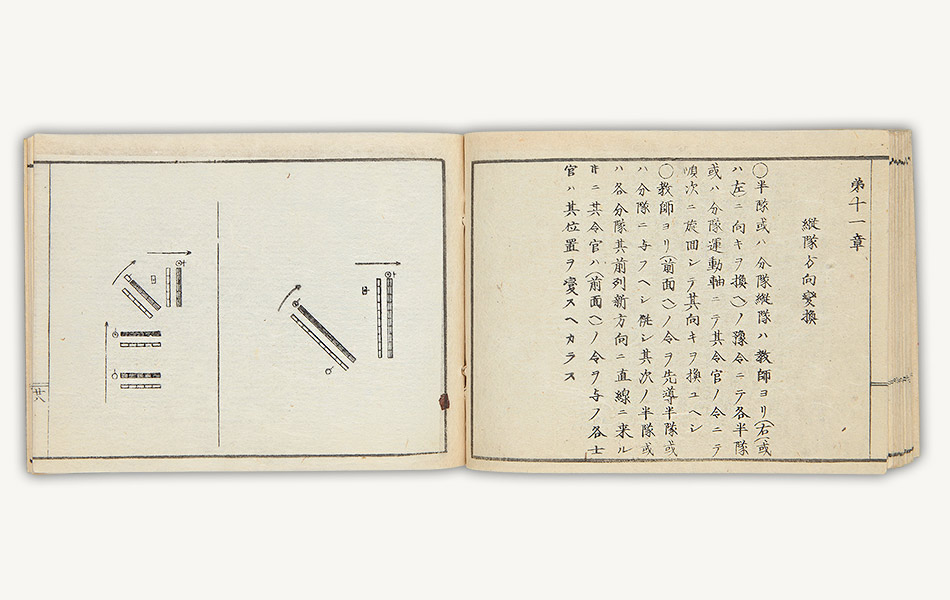 弟十一章
縦隊方向變換
〇半隊或ハ分隊縦隊ハ教師ヨリ(右)(或
ハ左)ニ向キヲ換ヘ)ノ豫令ニテ各半隊
或ハ分隊運動軸ニテ其令官ノ令ニテ
順次ニ旋回シテ其向キヲ換ユヘシ
〇教師ヨリ(前面ヘ)ノ令ヲ先導半隊或
ハ分隊ニ与フヘシ然シ其次ノ半隊或
ハ各分隊其前列新方向ニ直線ニ来ル
トキニ其令官ハ(前面ヘ)ノ令ヲ与フ各士
官ハ其位置ヲ變スヘカラス
廿八